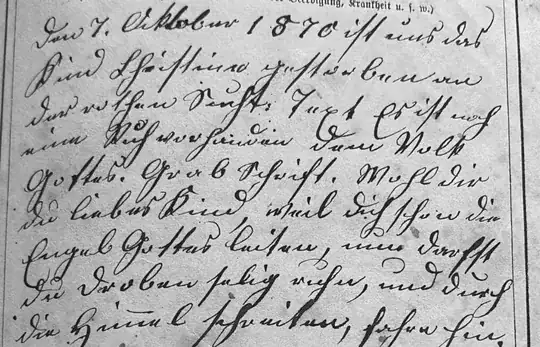 Beerdigung, Krankheit u. s. w.)
Den 7. Oktober 1870 ist uns das
Kind Christine gestorben an
der rothen Sucht: Text Es ist noch
eine Ruh vorhanden dem Volk
Gottes. Grab Schrift. Wohl dir
du liebes Kind, weil dich schon die
Engel Gottes leiten, nun darfst
du droben selig ruhn, und durch
die Himmel schreiten, fahre hin,